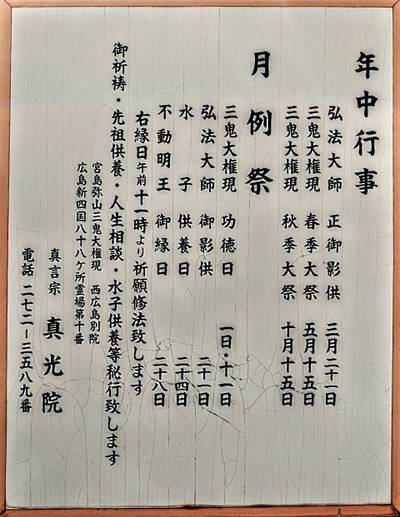 年中行事
弘法大師 正御影供 三月二十一日
三鬼大権現 春季大祭 五月十五日
三鬼大権現 秋季大祭 十月十五日
月例祭
三鬼大権現 功徳日 一日・十一日
弘法大師 御影供 二十一日
水子供養日 二十四日
不動明王 御縁日 二十八日
右縁日午前十一時より祈願修法致します
御祈祷・先祖供養・人生相談・水子供養等秘行致します
宮島弥山三鬼大権現 西広島別院
広島新四国八十八ケ所霊場第十番
真言宗 真光院
電話 二七二ー三五八九番